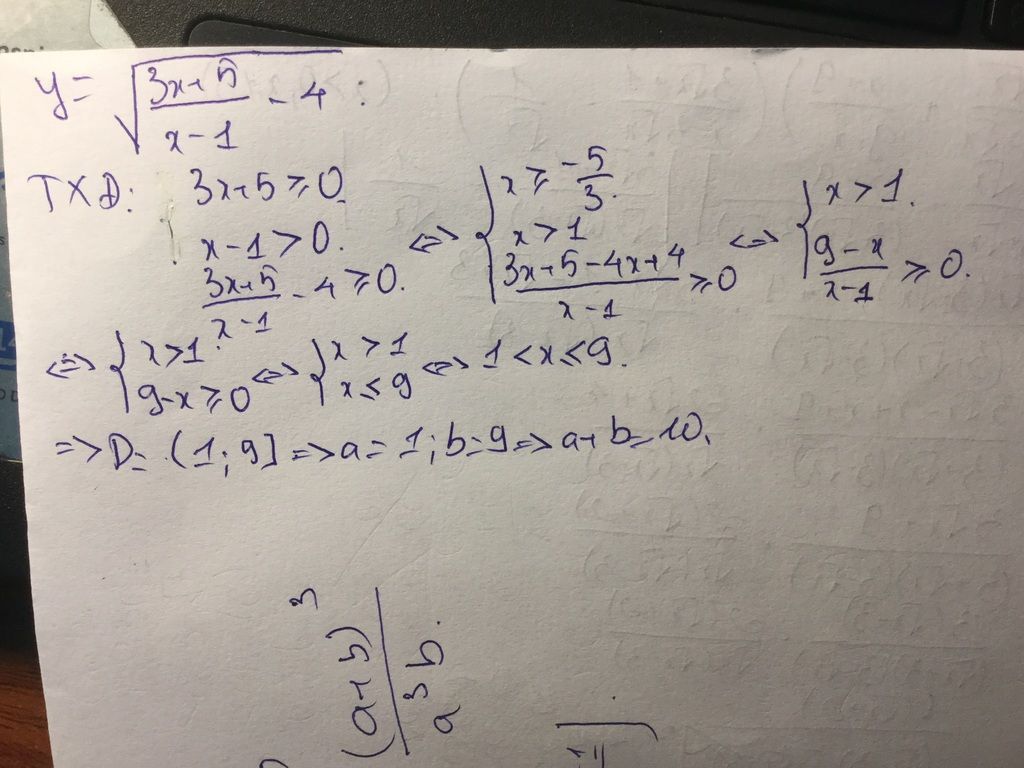 y = √((3x+5)/(x-1) - 4) :
TXĐ: 3x+5 ≥ 0. x-1 > 0. (3x+5)/(x-1) - 4 ≥ 0. ⇔ { x ≥ -5/3. x > 1 (3x+5-4x+4)/(x-1) ≥ 0 ⇔ { x > 1. (9-x)/(x-1) ≥ 0.
⇔ { x > 1. 9-x ≥ 0 ⇔ { x > 1 x ≤ 9 ⇔ 1 < x ≤ 9.
=> D = (1; 9] => a = 1; b = 9 => a + b = 10.
(a+b)³/(a³b).